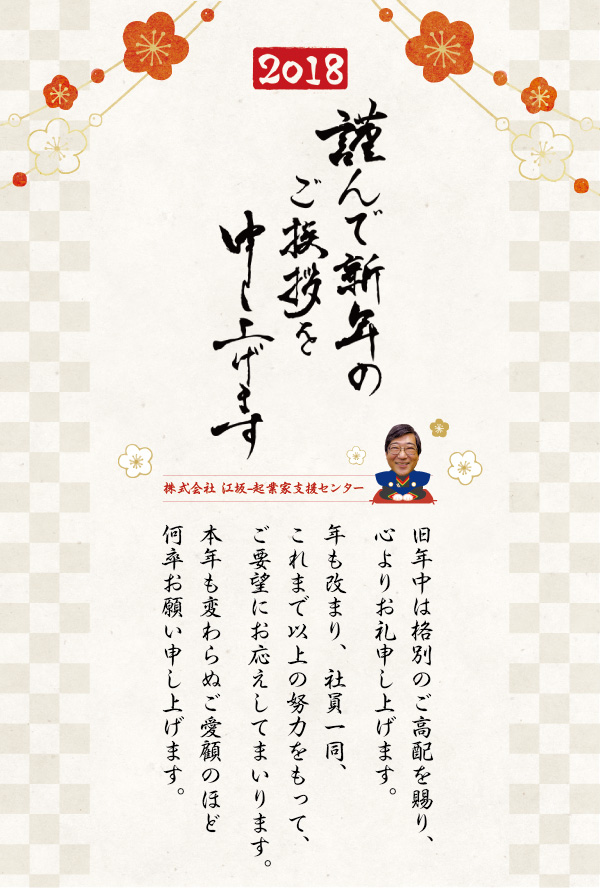 2018
謹んで新年の
ご挨拶を
申し上げます
株式会社 江坂-起業家支援センター
旧年中は格別のご高配を賜り、
心よりお礼申し上げます。
年も改まり、社員一同、
これまで以上の努力をもって、
ご要望にお応えしてまいります。
本年も変わらぬご愛顧のほど
何卒お願い申し上げます。